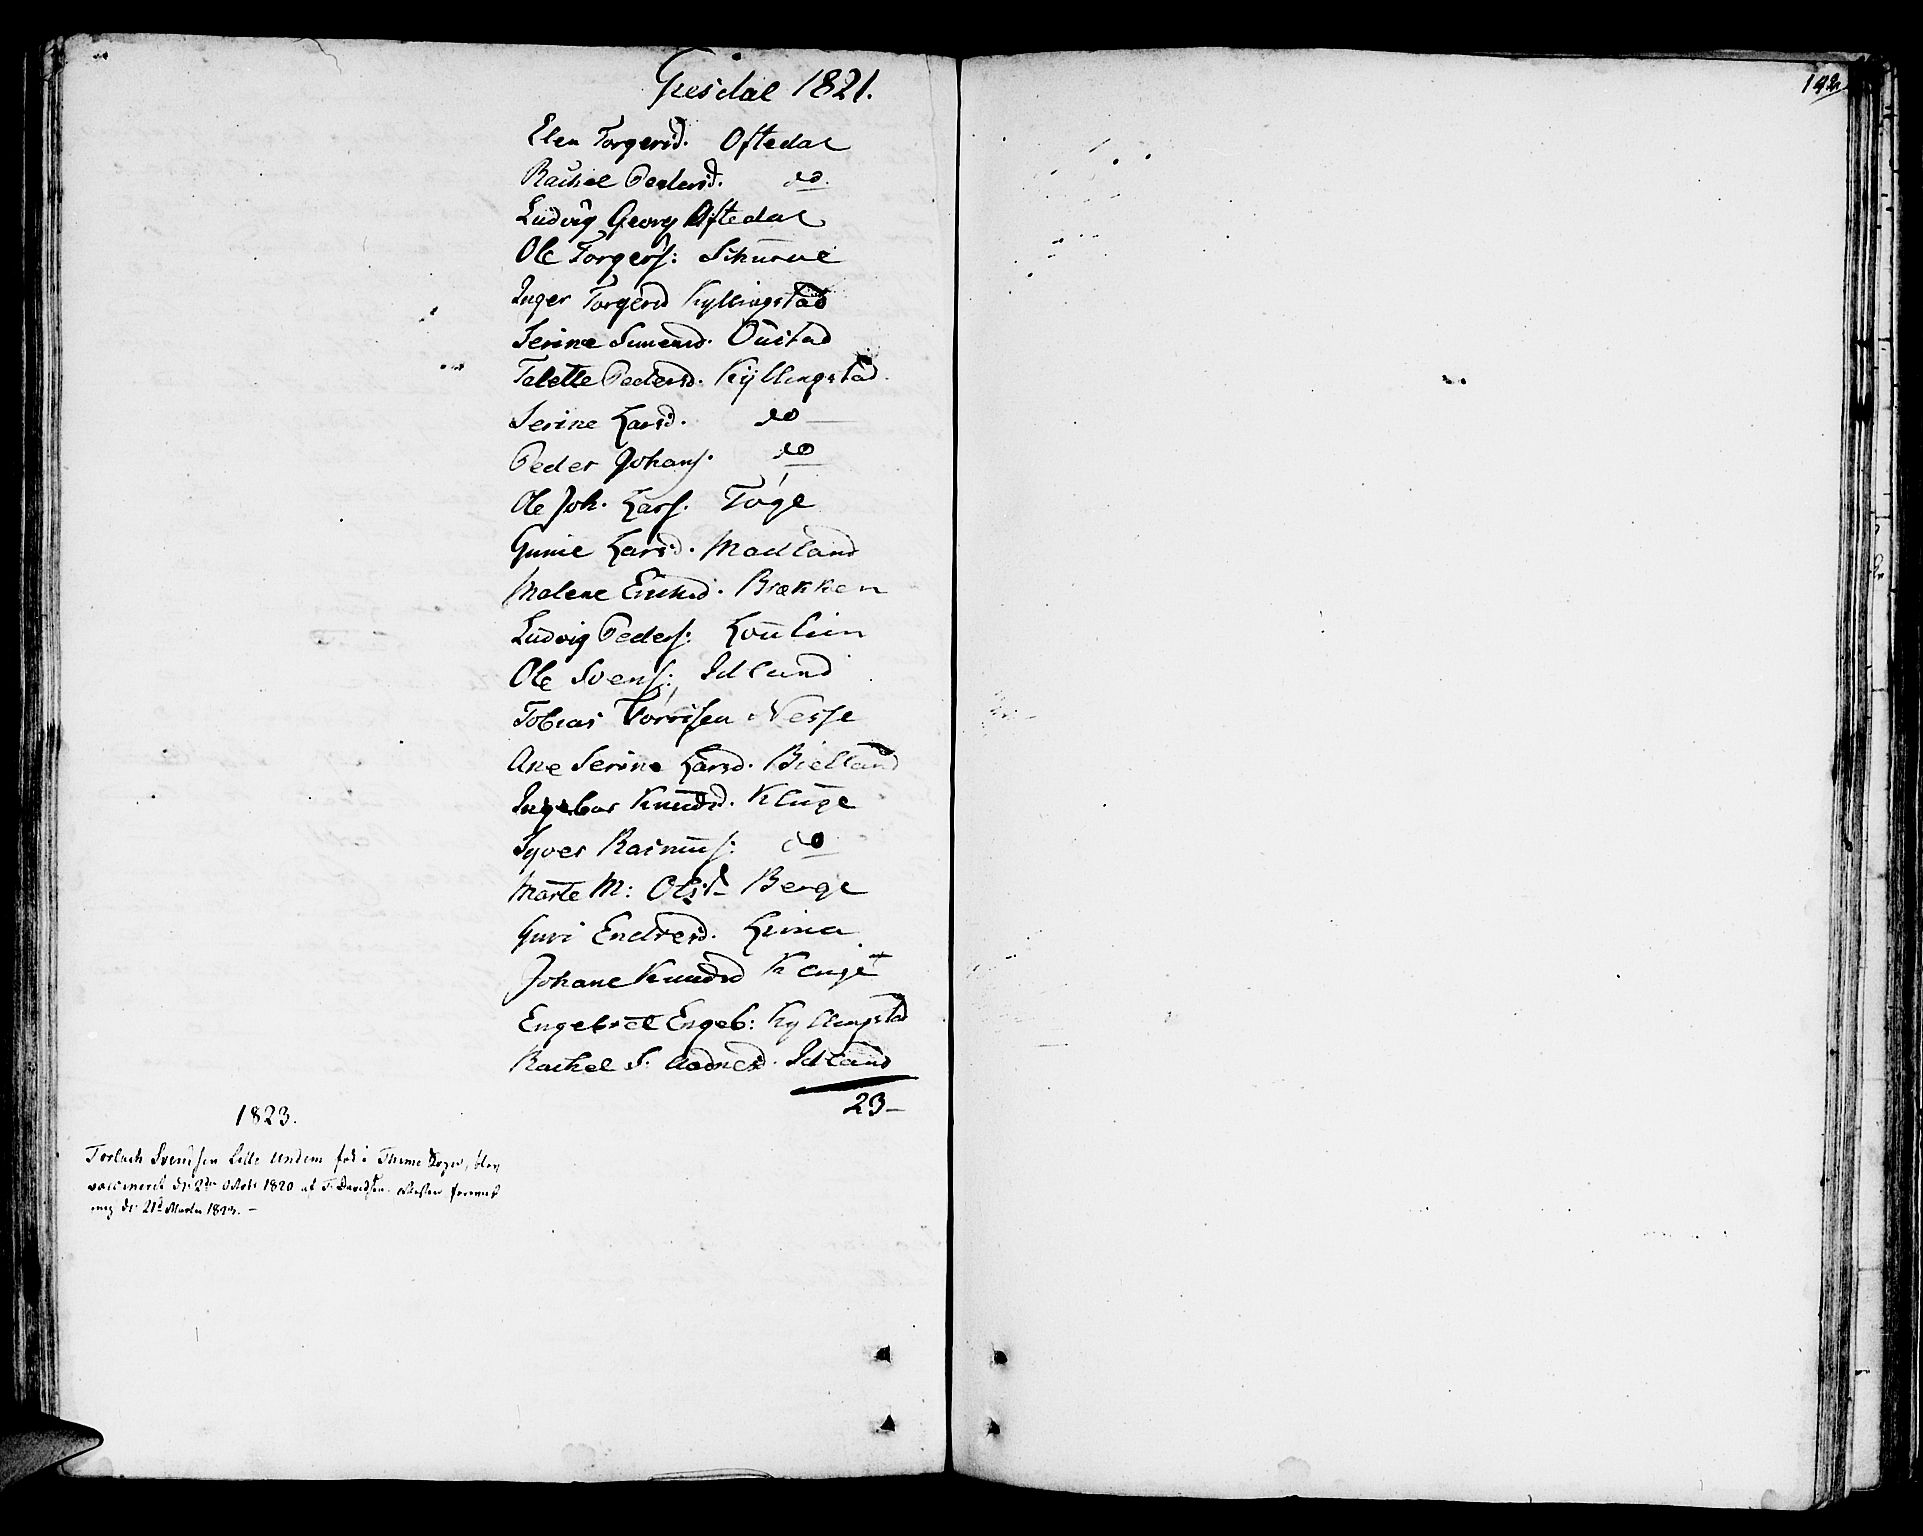 Gjesdal 1821.
Elen Torgersd. Oftedal
Rachel Pedersd. do.
Ludvig Georg Oftedal
Ole Torgers: Schurve
Inger Torgersd Kyllingstad
Serine Simensd. Oustad
Talette Pedersd. Kyllingstad.
Serine Larsd. do —
Peder Johans. do
Ole Joh. Lars. Töge
Gunie Larsd. Madland
Malene Erichsd. Brækken
Ludvig Peders: Lüülien
Ole Svens: Idland
Tobias Törrisen Nesse
Ane Serine Larsd. Bielland
Ingebor Knudsd. Kluge
Syver Rasmus: do
Marte M: Olsd. Berge
Guri Endresd. Lima
Johane Knudsd Kluge +
Engebret Engeb: Kyllingstad
Rachel S. Aadnesd. Idland
23 —
1823.
Torlach Svendsen Lille Undem fød i Thime Sogn, blev
vaccineret d: 2den Octobr 1820 af T. Davidsen. Attesten foreviist
mig d: 21d Martz 1823. —